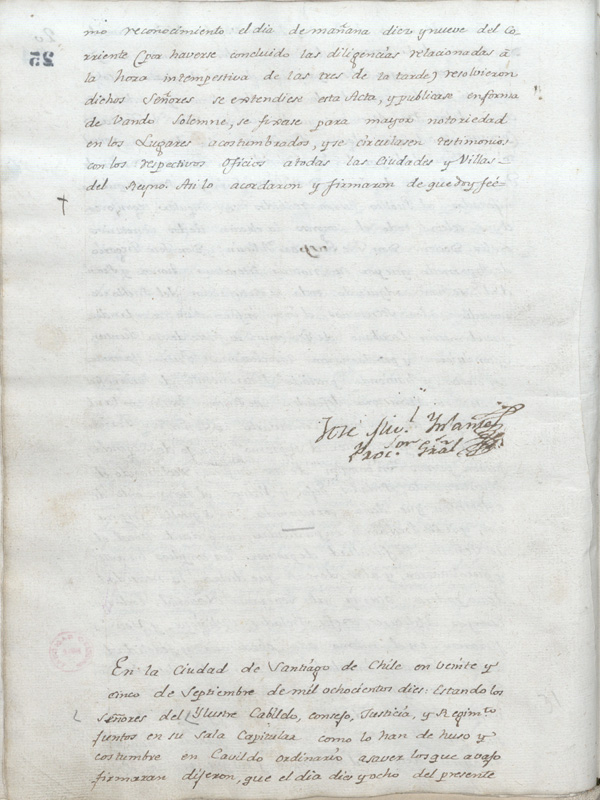 mo reconocimiento el dia de mañana diez y nueve del Co-
25
rriente (por haverse concluido las diligencias relacionadas á
la hora intempestiva de las tres de la tarde) resolvieron
dichos Señores se extendiese esta Acta, y publicase en forma
de Vando Solemne, se fixase para mayor notoriedad
en los Lugares acostumbrados, y se circulasen testimonios
con los respectivos Oficios a todas las Ciudades y Villas
del Reyno. Asi lo acordaron y firmaron de que doy fée-
José Mig.l Ynfante
Proc.or Gral
En la Ciudad de Santiago de Chile en veinte y
cinco de Septiembre de mil ochocientos dies: Estando los
Señores del Ylustre Cabildo, consejo, Justicia, y Regim.to
juntos en su Sala Capitular como lo han de huso y
costumbre en Cavildo ordinario asaver los que avajo
firmaran dijeron, que el dia diez y ocho del presente